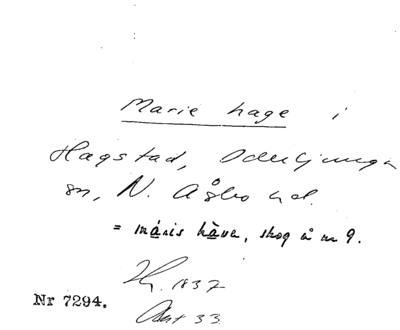 Marie hage i
Hagstad, Oderljunga
sn, N. Åsbo hd.
= máris hava, skog å nr 9.
Hy. 1837
Akt 33
Nr 7294.